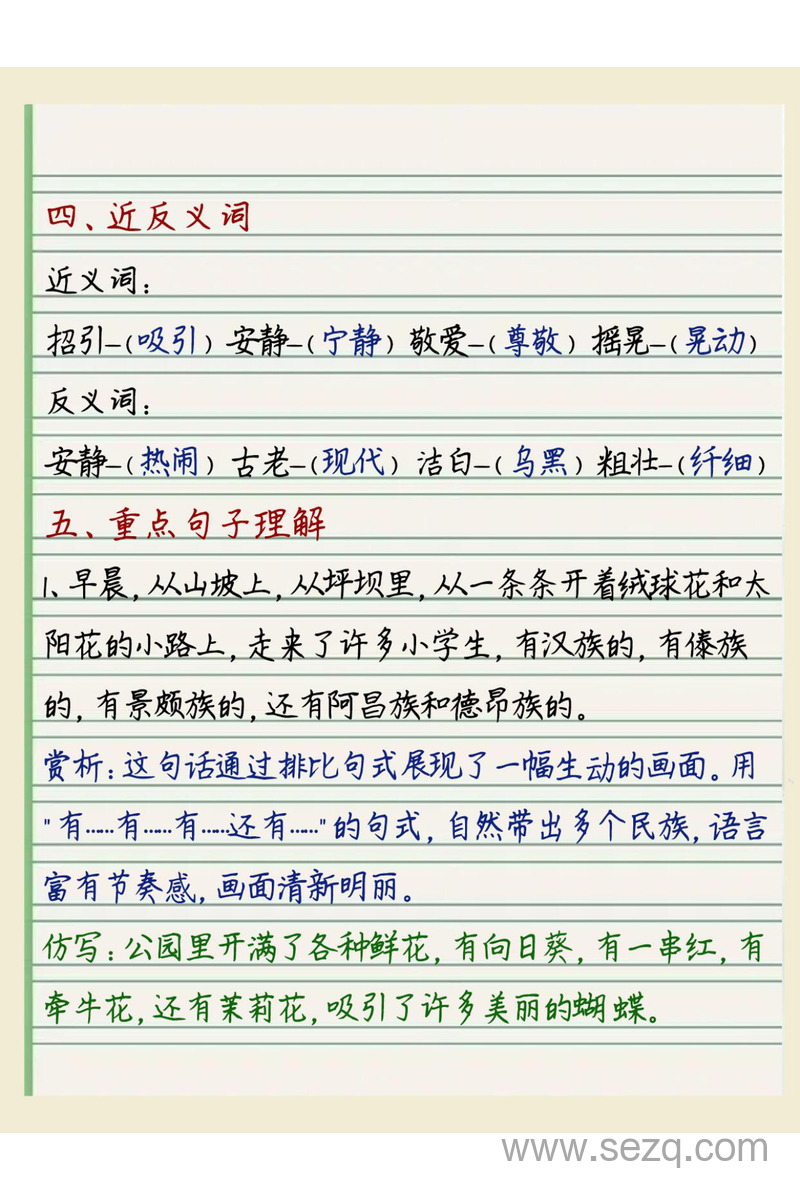 四、近反义词
近义词：
招引—（吸引）安静—（宁静）敬爱—（尊敬）摇晃—（晃动）
反义词：
安静—（热闹）古老—（现代）洁白—（乌黑）粗壮—（纤细）
五、重点句子理解
1、早晨，从山坡上，从坪坝里，从一条条开着绒球花和太
阳花的小路上，走来了许多小学生，有汉族的，有傣族
的，有景颇族的，还有阿昌族和德昂族的。
赏析：这句话通过排比句式展现了一幅生动的画面。用
"有……有……有……还有……"的句式，自然带出多个民族，语言
富有节奏感，画面清新明丽。
仿写：公园里开满了各种鲜花，有向日葵，有一串红，有
牵牛花，还有茉莉花，吸引了许多美丽的蝴蝶。
www.sezq.com